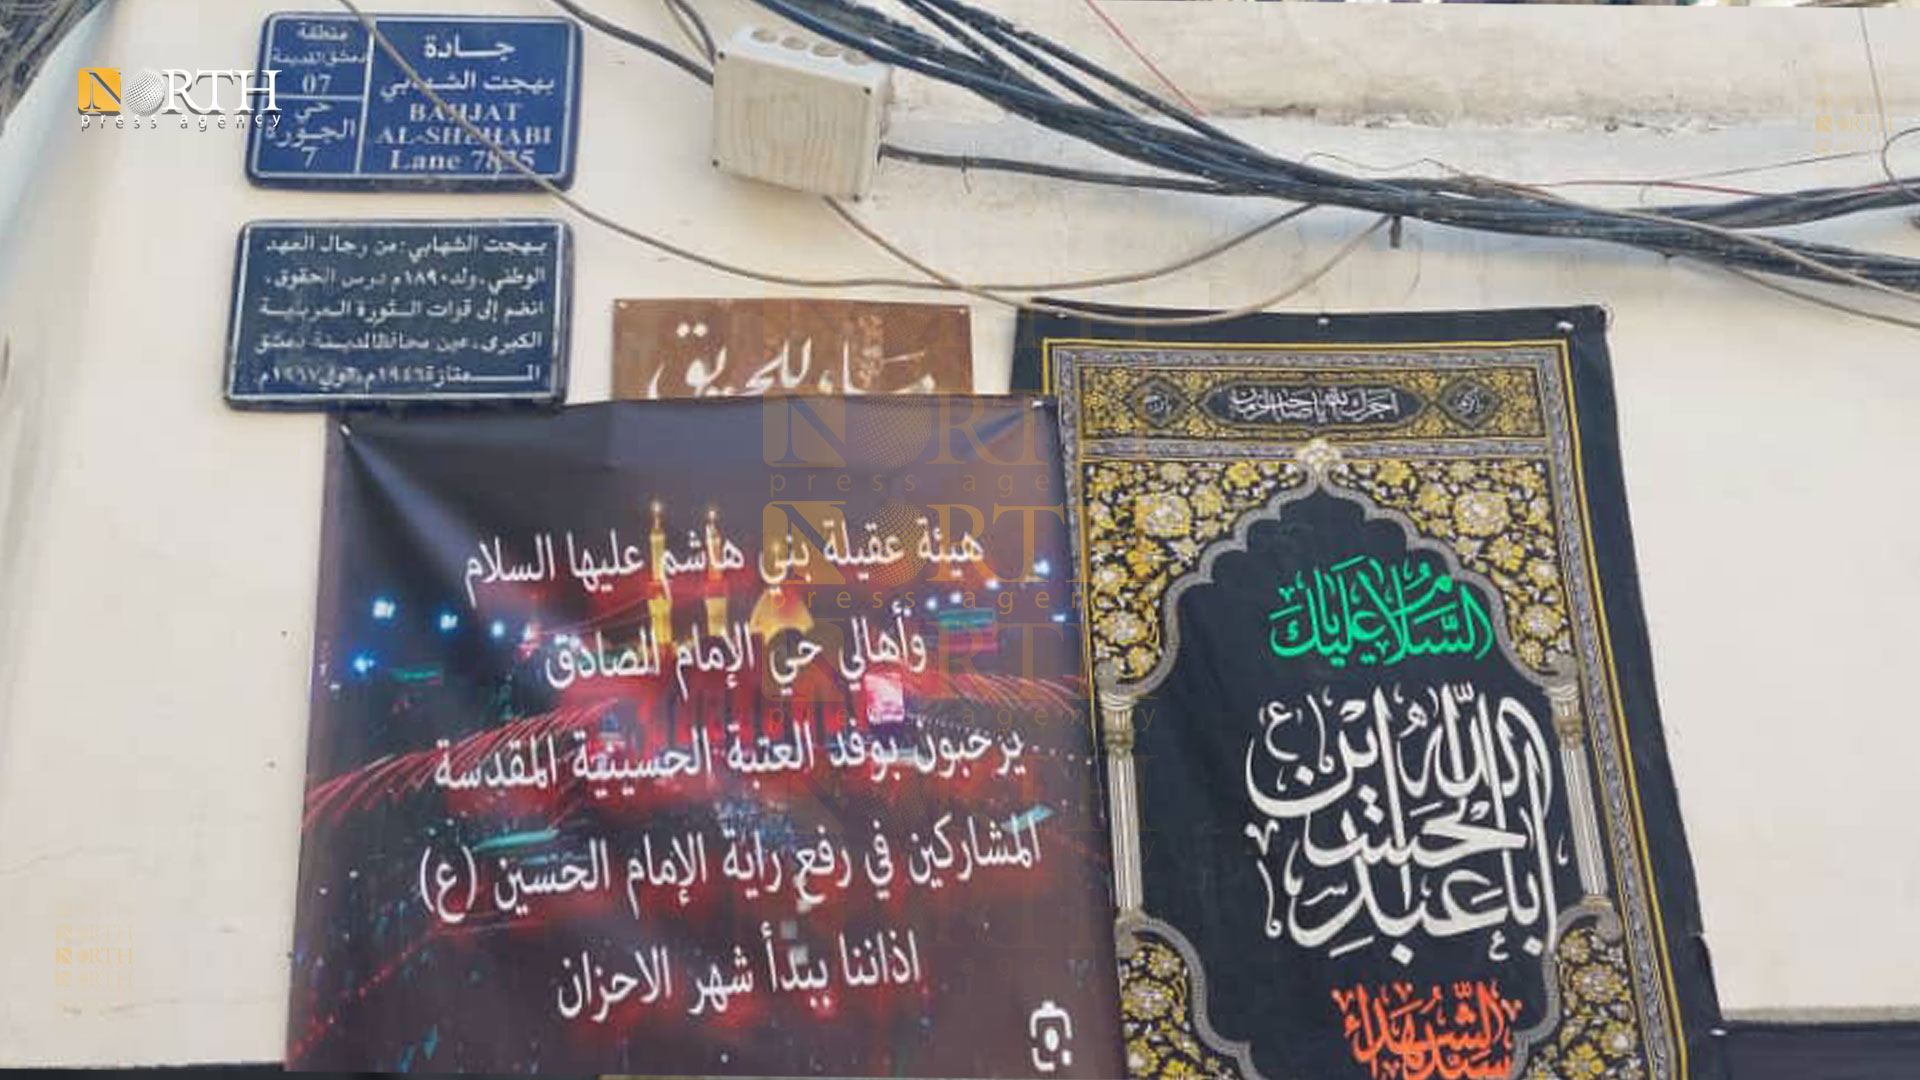 NORTH
press agency
منطقة
دمشق القديمة
07
حي
الجورة
7
جادة
بهجت الشهابي
BAHJAT
AL-SHEHABI
Lane 7835
بهجت الشهابي: من رجال العهد
الوطني، ولد ١٨٩٠م درس الحقوق،
انضم إلى قوات الثورة العربية
الكبرى، عين محافظا لمدينة دمشق
الممتازة ١٩٤٦م، توفي ١٩٦٧م.
ماء للحريق
هيئة عقيلة بني هاشم عليها السلام
وأهالي حي الإمام الصادق
يرحبون بوفد العتبة الحسينية المقدسة
المشاركين في رفع راية الإمام الحسين (ع)
اذاننا ببدأ شهر الاحزان
السلام عليك
اباعبدالله الحسين
ابن
سيد الشهداء